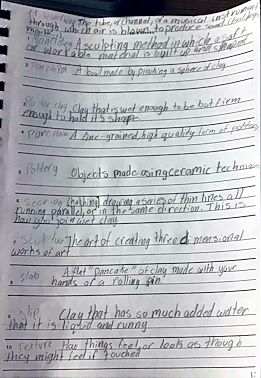 The tube, or channel, of a musical instrument
through which air is blown, to produce sound
A sculpting method in which a soft
or workable material is built up and shaped
Pinch Pot A bowl made by pinching a sphere of clay.
Plastic clay Clay that is wet enough to be but firm
enough to hold it's shape
4 Porcelain A fine-grained, high quality form of pottery
5 Pottery Objects made using ceramic techniques
6 Scoring (hatching) drawing a series of thin lines all
running parallel, or in the same direction. This is
how you join wet clay
7 Sculpture The art of creating three dimensional
works of art
8 slab A flat "pancake" of clay made with your
hands or a rolling pin.
9 slip Clay that has so much added water
that it is liquid and runny
10 Texture How things feel, or look as though
they might feel if touched